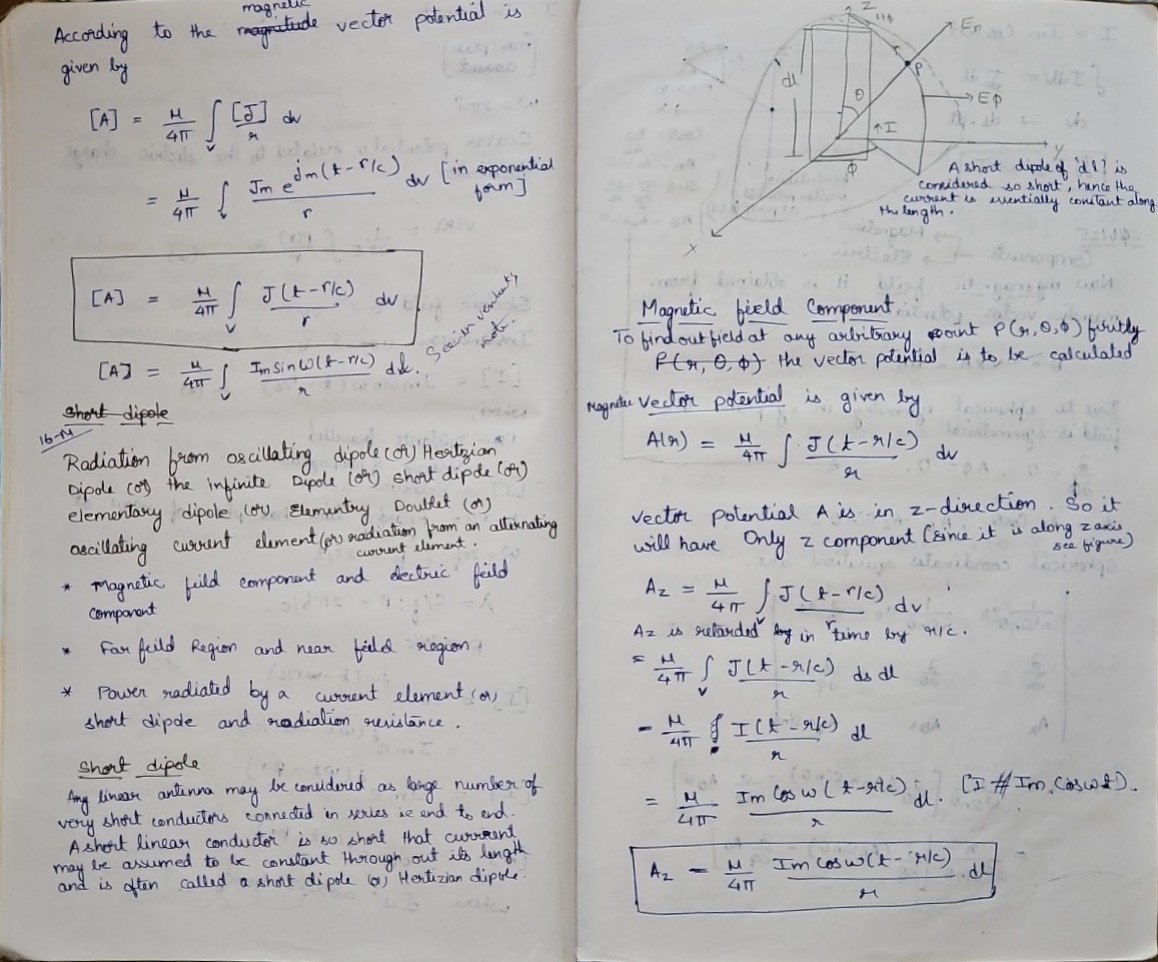 magnetic
According to the magnitude vector potential is
given by
[A] = μ/4π ∫v [J]/r dv
= μ/4π ∫v Jm e^jm(t-r/c)/r dv [in exponential
form]
[A] = μ/4π ∫v J(t-r/c)/r dv
[A] = μ/4π ∫v Im Sin ω(t-r/c)/r dl.
Short dipole
16-M
Radiation from oscillating dipole (or) Hertzian
Dipole (or) the infinite Dipole (or) short dipole (or)
elementary dipole (or) Elementry Doublet (or)
oscillating current element (or) radiation from an alternating
current element.
* Magnetic feild component and electric feild
component
* Far feild Region and near feild region
* Power radiated by a current element (or)
short dipole and radiation resistance.
Short dipole
Any linear antenna may be considered as large number of
very short conductors connected in series ie end to end.
A short linear conductor is so short that current
may be assumed to be constant through out its length
and is often called a short dipole (or) Hertizian dipole.
Z
Er
r
P
dl
θ
Eφ
↑I
y
φ
x
A short dipole of 'dl' is
considered so short, hence the
current is essentially constant along
the length.
Magnetic field Component
To find out field at any arbitrary point P(r,θ,φ) firstly
P(r,θ,φ) the vector potential is to be calculated
Magnetic vector potential is given by
A(r) = μ/4π ∫ J(t-r/c)/r dv
vector potential A is in z-direction. So it
will have Only z component (since it is along z axis
see figure)
Az = μ/4π ∫v J(t-r/c)/r dv
Az is retarded by in time by r/c.
= μ/4π ∫v J(t-r/c)/r ds dl
= μ/4π ∮ I(t-r/c)/r dl
= μ/4π Im Cos ω(t-r/c)/r dl. [I # Im Cos ωt).
Az = μ/4π Im cos ω(t-r/c)/r .dl